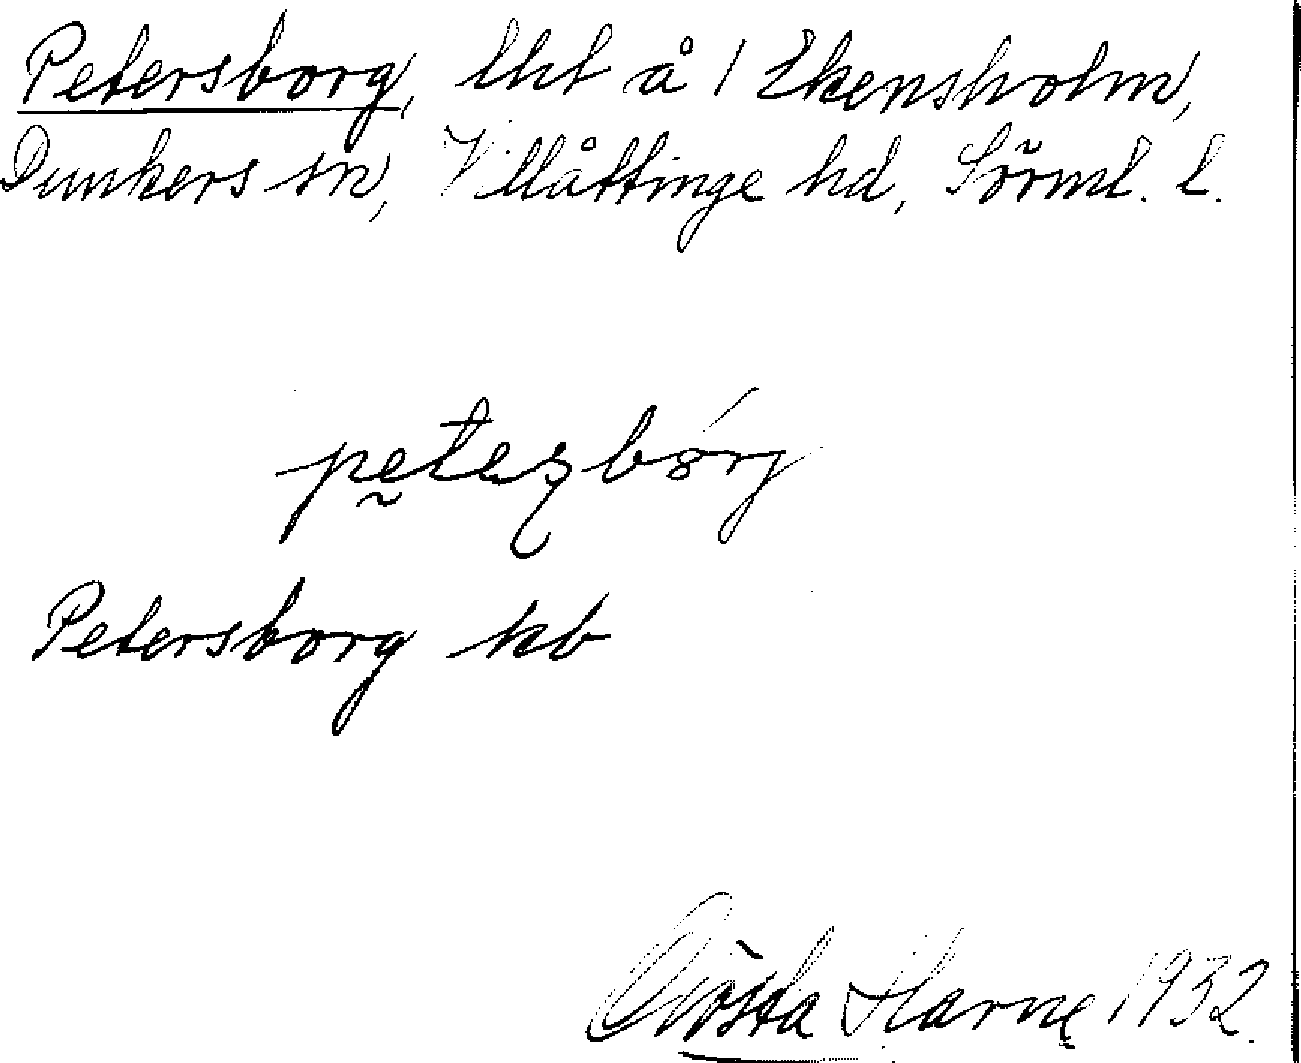 Petersborg, lht å 1 Ekensholm,
Dunkers sn, Villåttinge hd, Sörml. l.
Petersborg kb
Gösta Harne 1932.